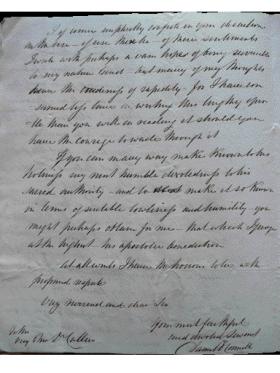 I of course implicitly confide in your discretion
in the use of these
I write with perhaps a vain hope of being serviceable
to my native land but many of my thoughts
have the crudeness of rapidity - for I have con
sumed less time in writing this lengthy epis
tle than you will in reading it should you
have the courage to wade through it
If you can in any way make known to his
Holiness my most humble devotedness to his
sacred authority - and to make it so known
in terms of suitable lowliness and humility you
might perhaps obtain for me - that which I
at the highest his apostolic benediction
at all events I have the honour to be with
profound respect
Very reverend and dear Sir
Your most faithful
and devoted Servant
Daniel O'Connell
To the
Very Rev Dr Cullen